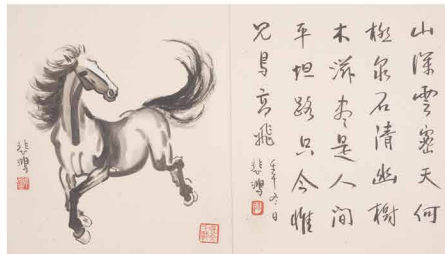 山深雲密天何
極泉石清幽樹
木滋盡是人間
平坦路只今惟
見鳥高飛
冬日
悲鴻
悲鴻